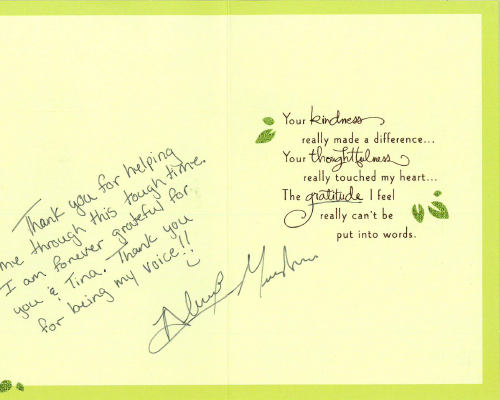 Thank you for helping
me through this tough time.
I am forever grateful for
you & Tina. Thank you
for being my voice!!
Your kindness
really made a difference...
Your thoughtfulness
really touched my heart...
The gratitude I feel
really can't be
put into words.